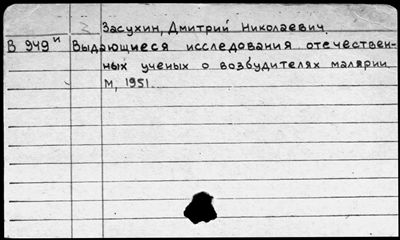 Засухин, Дмитрий Николаевич.
В 949 и Выдающиеся исследования отечествен-
ных ученых о возбудителях малярии.
М, 1951.